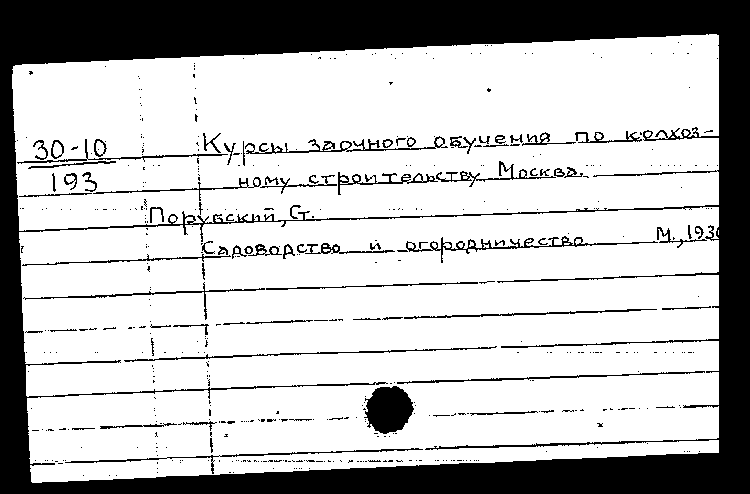 30-10
193
Курсы заочного обучения по колхоз-
ному строительству Москва.
Порубский, Ст.
Садоводство и огородничество М., 1930